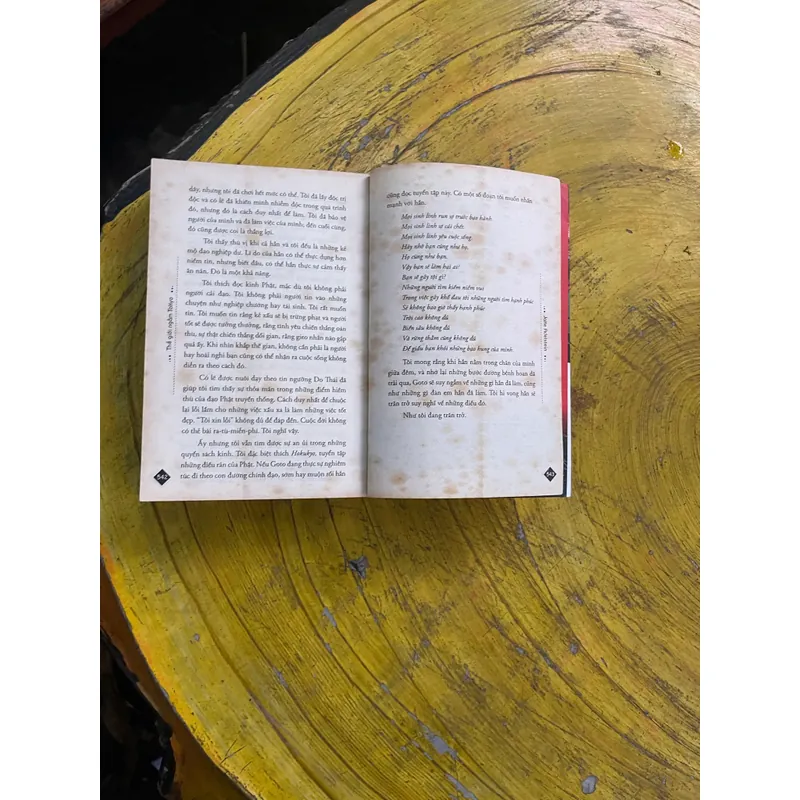 dãy, nhưng tôi đã chơi hết mức có thể. Tôi đã lấy độc trị
độc và có đã khiến mình nhiễm độc trong quá trình
đó, nhưng đó là cách duy nhất để làm. Tôi đã bảo vệ
người của mình và đã làm việc của mình; đến cuối cùng,
đó cũng được coi là thắng lợi.
Tôi thấy thú vị khi cả hắn và tôi đều là những kẻ
mộ đạo nghiệp dư. Lí do của hắn có thể thực dụng hơn
niềm tin, nhưng biết đâu, có thể hắn thực sự cảm thấy
ăn năn. Đó là một khả năng.
Tôi thích đọc kinh Phật, mặc dù tôi không phải
người cải đạo. Tôi không phải người tin vào những
chuyện như nghiệp chướng hay tái sinh. Tôi rất muốn
tin. Tôi muốn tin rằng kẻ xấu sẽ bị trừng phạt và người
tốt sẽ được tưởng thưởng, rằng tình yêu chiến thắng oán
thù, sự thật chiến thắng dối gian, rằng gieo nhân nào gặp
quả ấy. Khi nhìn khắp thế gian, không cần phải là người
hay hoài nghi bạn cũng có thể nhận ra cuộc sống không
diễn ra theo cách đó.
Có lẽ được nuôi dạy theo tín ngưỡng Do Thái đã
giúp tôi tìm thấy sự thỏa mãn trong những điểm hiểm
thù của đạo Phật truyền thống. Cách duy nhất để chuộc
lại lỗi lầm cho những việc xấu xa là làm những việc tốt
đẹp. "Tôi xin lỗi" không đủ để đáp đền. Cuộc đời không
có thẻ bài ra-tù-miễn-phí. Tôi nghĩ vậy.
Ấy nhưng tôi vẫn tìm được sự an ủi trong những
quyển sách kinh. Tôi đặc biệt thích Hokukyo, tuyển tập
những điều răn của Phật. Nếu Goto đang thực sự nghiêm
túc đi theo con đường chính đạo, sớm hay muộn rồi hắn
Thế giới ngầm Tokyo
542
cũng đọc tuyển tập này. Có một số đoạn tôi muốn nhấn
mạnh với hắn.
Mọi sinh linh run sợ trước bạo hành.
Mọi sinh linh sợ cái chết.
Mọi sinh linh yêu cuộc sống.
Hãy nhớ bạn cũng như họ.
Họ cũng như bạn.
Vậy bạn sẽ làm hại ai?
Bạn sẽ gây tội gì?
Những người tìm kiếm niềm vui
Trong việc gây khổ đau tới những người hạnh phúc
Sẽ không bao giờ thấy hạnh phúc.
Trời cao không đủ
Biển sâu không đủ
Và rừng thẳm cũng không đủ
Để giấu bạn khỏi những bạo hung của mình.
Tôi mong rằng khi hắn nằm trong chăn của mình
giữa đêm, và nhớ lại những bước đường bệnh hoạn đã
trải qua, Goto sẽ suy ngẫm về những gì hắn đã làm, cũng
như những gì đàn em hắn đã làm. Tôi hi vọng hắn sẽ
trăn trở suy nghĩ về những điều đó.
Như tôi đang trăn trở.
Jake Adelstein
543